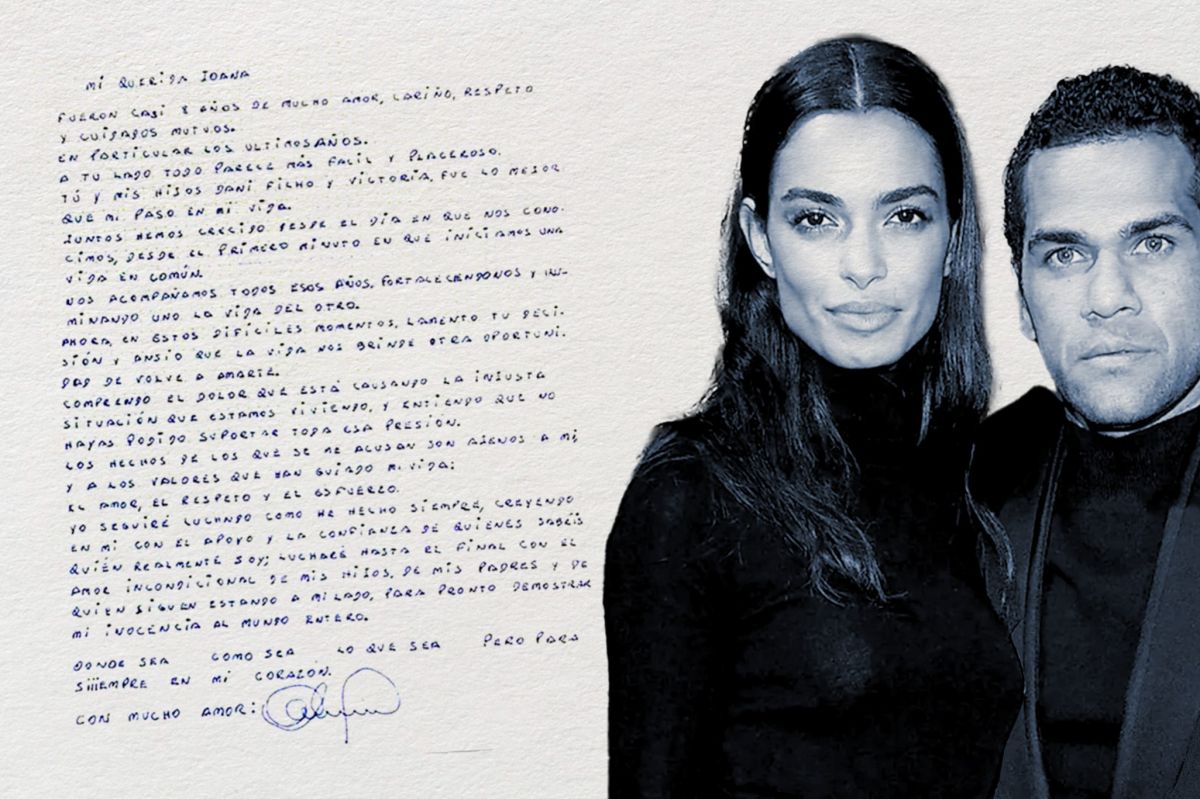 MI QUERIDA IOANA
FUERON CASI 8 AÑOS DE MUCHO AMOR, CARIÑO, RESPETO
Y CUIDADOS MUTUOS.
EN PARTICULAR LOS ULTIMOS AÑOS.
A TU LADO TODO PARECE MÁS FACIL Y PLACEROSO.
TÚ Y MIS HIJOS DANI FILHO Y VICTORIA, FUE LO MEJOR
QUE MI PASO EN MI VIDA.
JUNTOS HEMOS CRECIDO DESDE EL DÍA EN QUE NOS CONO-
CIMOS, DESDE EL PRIMERO MINUTO EN QUE INICIAMOS UNA
VIDA EN COMÚN.
NOS ACOMPAÑAMOS TODOS ESOS AÑOS, FORTALECENDONOS Y ILU-
MINANDO UNO LA VIDA DEL OTRO.
AHORA, EN ESTOS DIFÍCILES MOMENTOS, LAMENTO TU DECI-
SIÓN Y ANSIO QUE LA VIDA NOS BRINDE OTRA OPORTUNI-
DAD DE VOLVE A AMARTE.
COMPRENDO EL DOLOR QUE ESTÁ CAUSANDO LA INJUSTA
SITUACIÓN QUE ESTAMOS VIVIENDO, Y ENTIENDO QUE NO
HAYAS PODIDO SUPORTAR TODA ESA PRESIÓN.
LOS HECHOS DE LOS QUE SE ME ACUSAN SON AJENOS A MI,
Y A LOS VALORES QUE HAN GUIADO MI VIDA:
EL AMOR, EL RESPETO Y EL ESFUERZO.
YO SEGUIRÉ LUCHANDO COMO HE HECHO SIEMPRE, CREYENDO
EN MI CON EL APOYO Y LA CONFIANZA DE QUIENES SABÉIS
QUIÉN REALMENTE SOY; LUCHARÉ HASTA EL FINAL CON EL
AMOR INCONDICIONAL DE MIS HIJOS, DE MIS PADRES Y DE
QUIEN SIGUEN ESTANDO A MI LADO, PARA PRONTO DEMOSTRAR
MI INOCENCIA AL MUNDO ENTERO.
DONDE SEA COMO SEA LO QUE SEA PERO PARA
SIIIEMPRE EN MI CORAZÓN.
CON MUCHO AMOR: